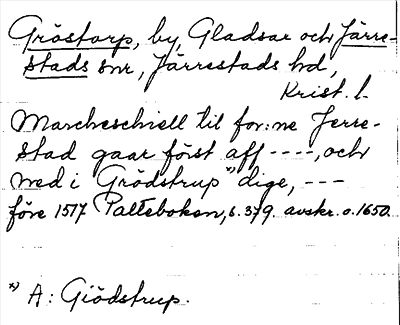 Gröstorp, by, Gladsax och Järre-
stads snr, Järrestads hd,
Krist. l.
Marcheschiell til for:ne Jerre-
stad gaar först aff ----, och
ned i Grödstrup *) dige, ---
före 1517 Palteboken, s. 379. avskr. o. 1650.
*) A: Giödstrup.